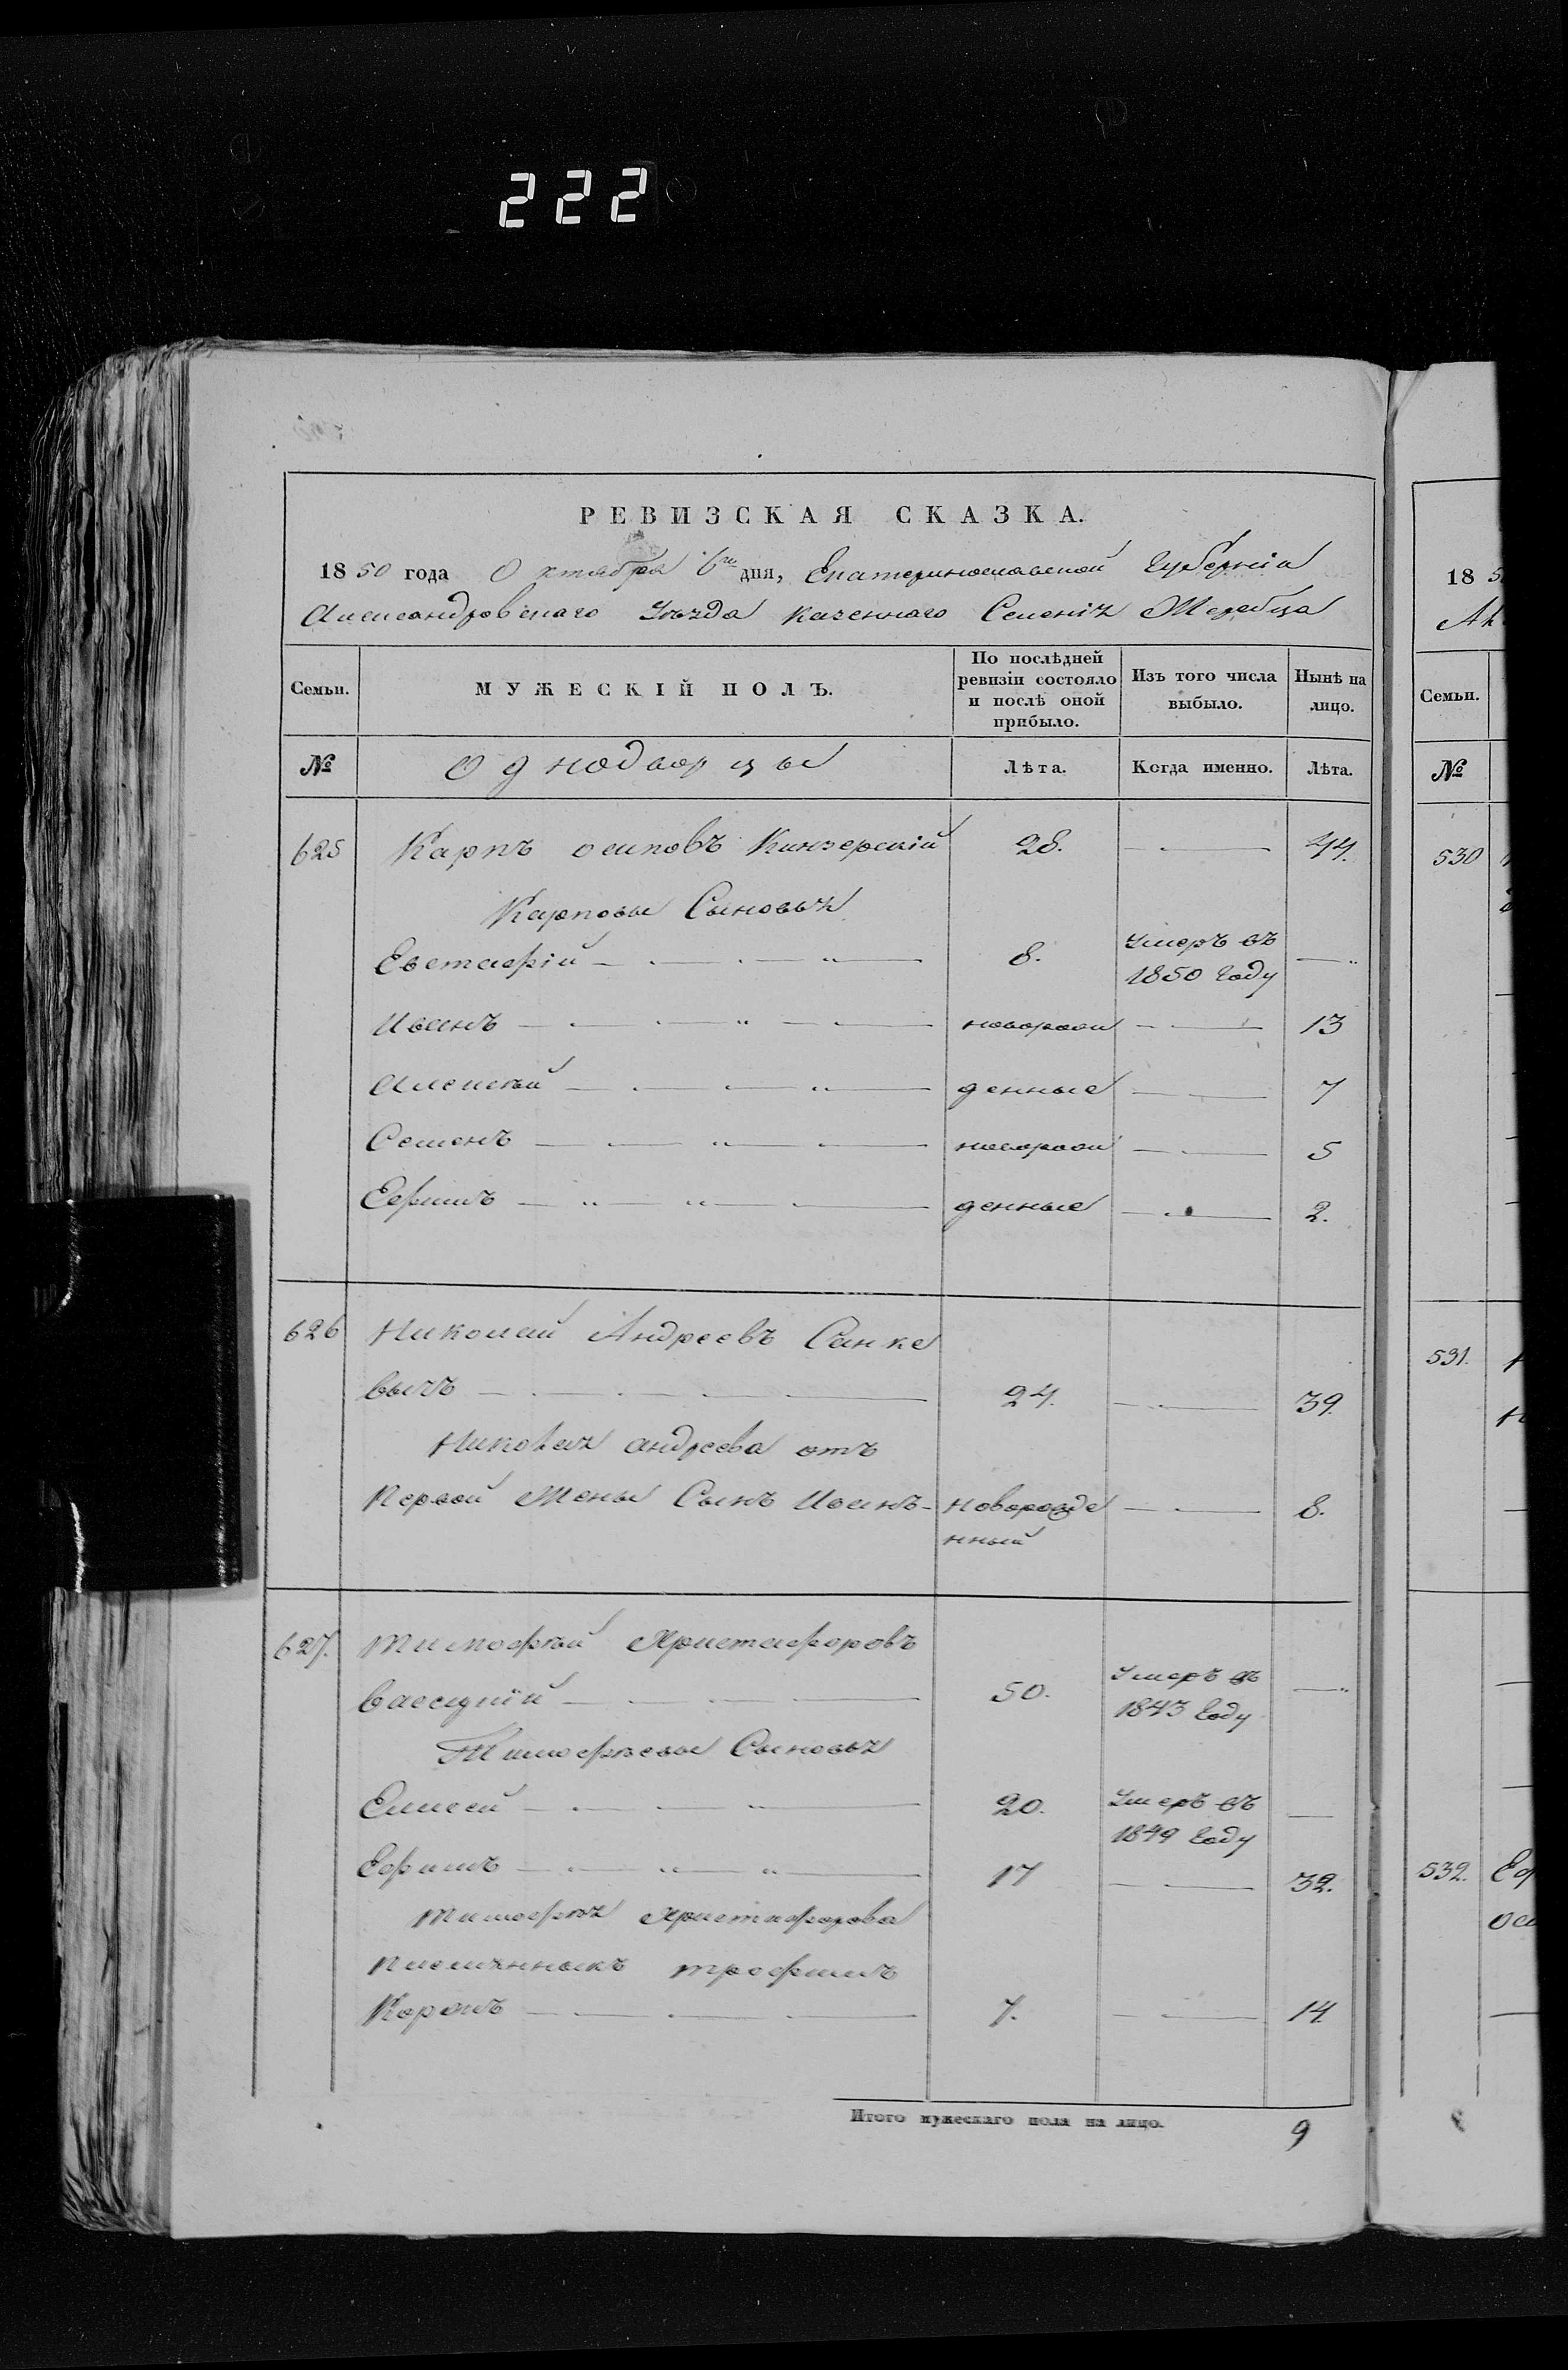 222
РЕВИЗСКАЯ СКАЗКА.
1850 года Октября 6го дня, Екатеринославской Губерніи
Александровскаго Уѣзда казеннаго Селенія Жеребца
Семьи. МУЖЕСКІЙ ПОЛЪ. По послѣдней ревизіи состояло и послѣ оной прибыло. Изъ того числа выбыло. Нынѣ на лицо.
№ Однодворцы Лѣта. Когда именно. Лѣта.
625 Карпъ осиповъ Кинзерскій 28. 44.
Карповы Сыновья
Евстафій 8. Умеръ въ 1850 Году
Иванъ новорож 13
Алексѣй денные 7
Семенъ новорож 5
Ефимъ денные 2.
626 Николай Андреевъ Санке
вычъ 24. 39.
Николая андреева отъ
Первой Жены Сынъ Иванъ новорожде 8.
нный
627. Тимофѣй Христафоровъ
50. Умеръ въ 1843 Году
Тимофѣевы Сыновья
Елисей 20. Умеръ въ 1849 Году
Ефимъ 17 32.
Тимофѣя Христафорова
племянныкъ трофимъ
Корожъ 7. 14
Итого мужескаго пола на лицо. 9
18 5
Ак
Семьи.
№
530
531.
532. Еф
оси